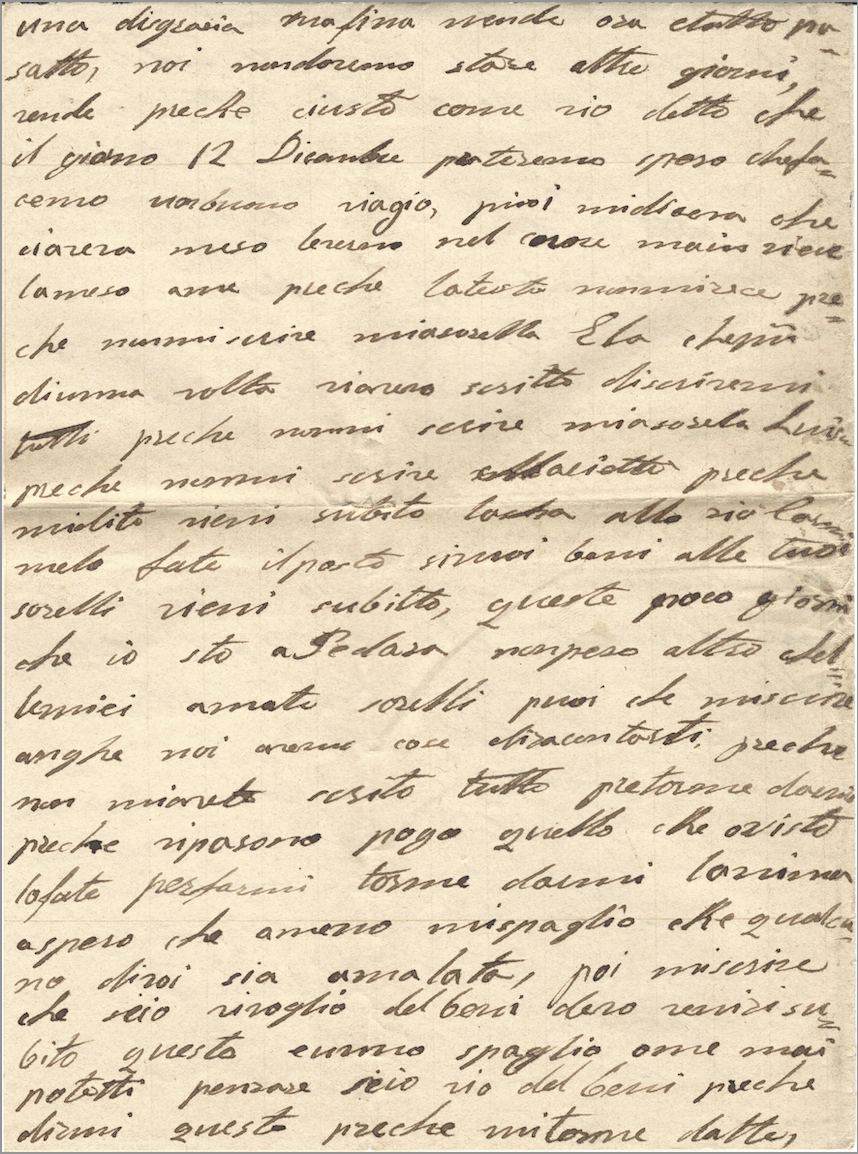 una disgrasia ma fina nende ora etutto pa-
satto, noi nondoremo stare altre giorni,
rende preche ciusto come rio detto che
il giorno 12 Dicembre parteremo spero chefa-
cemo unbuono riagio, puoi midicera che
ciarera meso leremo nel core mai riere
lameso ame preche latesta nonmirece pre-
che nonmi scrire miasorella Ela chepiu
diunna rolta riarero scritto discrirermi
tutti preche nonmi scrire miasorela Luisa
preche nonmi scrire preche
midite rieni subito lacha allo rio
melo fate ilposto siruoi beni alle tuoi
sorelli rieni subitto, queste poco giorni
che io sto aPedara nonpero altro chel
lerniei amate sorelli puoi che miscrire
anghe noi aremo cose diracontarti, preche
non miarete scrito tutto pretorme darmi
preche ripasono pogo quello che oristo
lofate perfarmi torme darmi lanima
aspero che ameno mispaglio che qualcu-
no diroi sia amalata, poi miscrire
che seio riroglio delbeni dero renirisu-
bito questo eunno spaglio ome mai
potetti penzare seio rio del beni preche
dirmi questo preche mitorme datte,